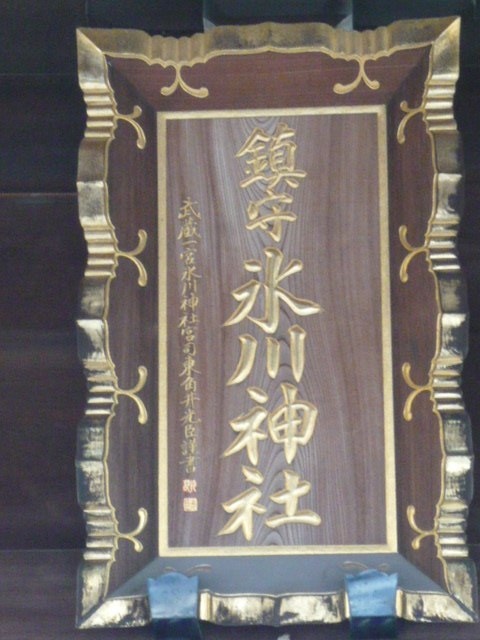 鎮守氷川神社
武蔵一宮氷川神社宮司東角井光臣謹書